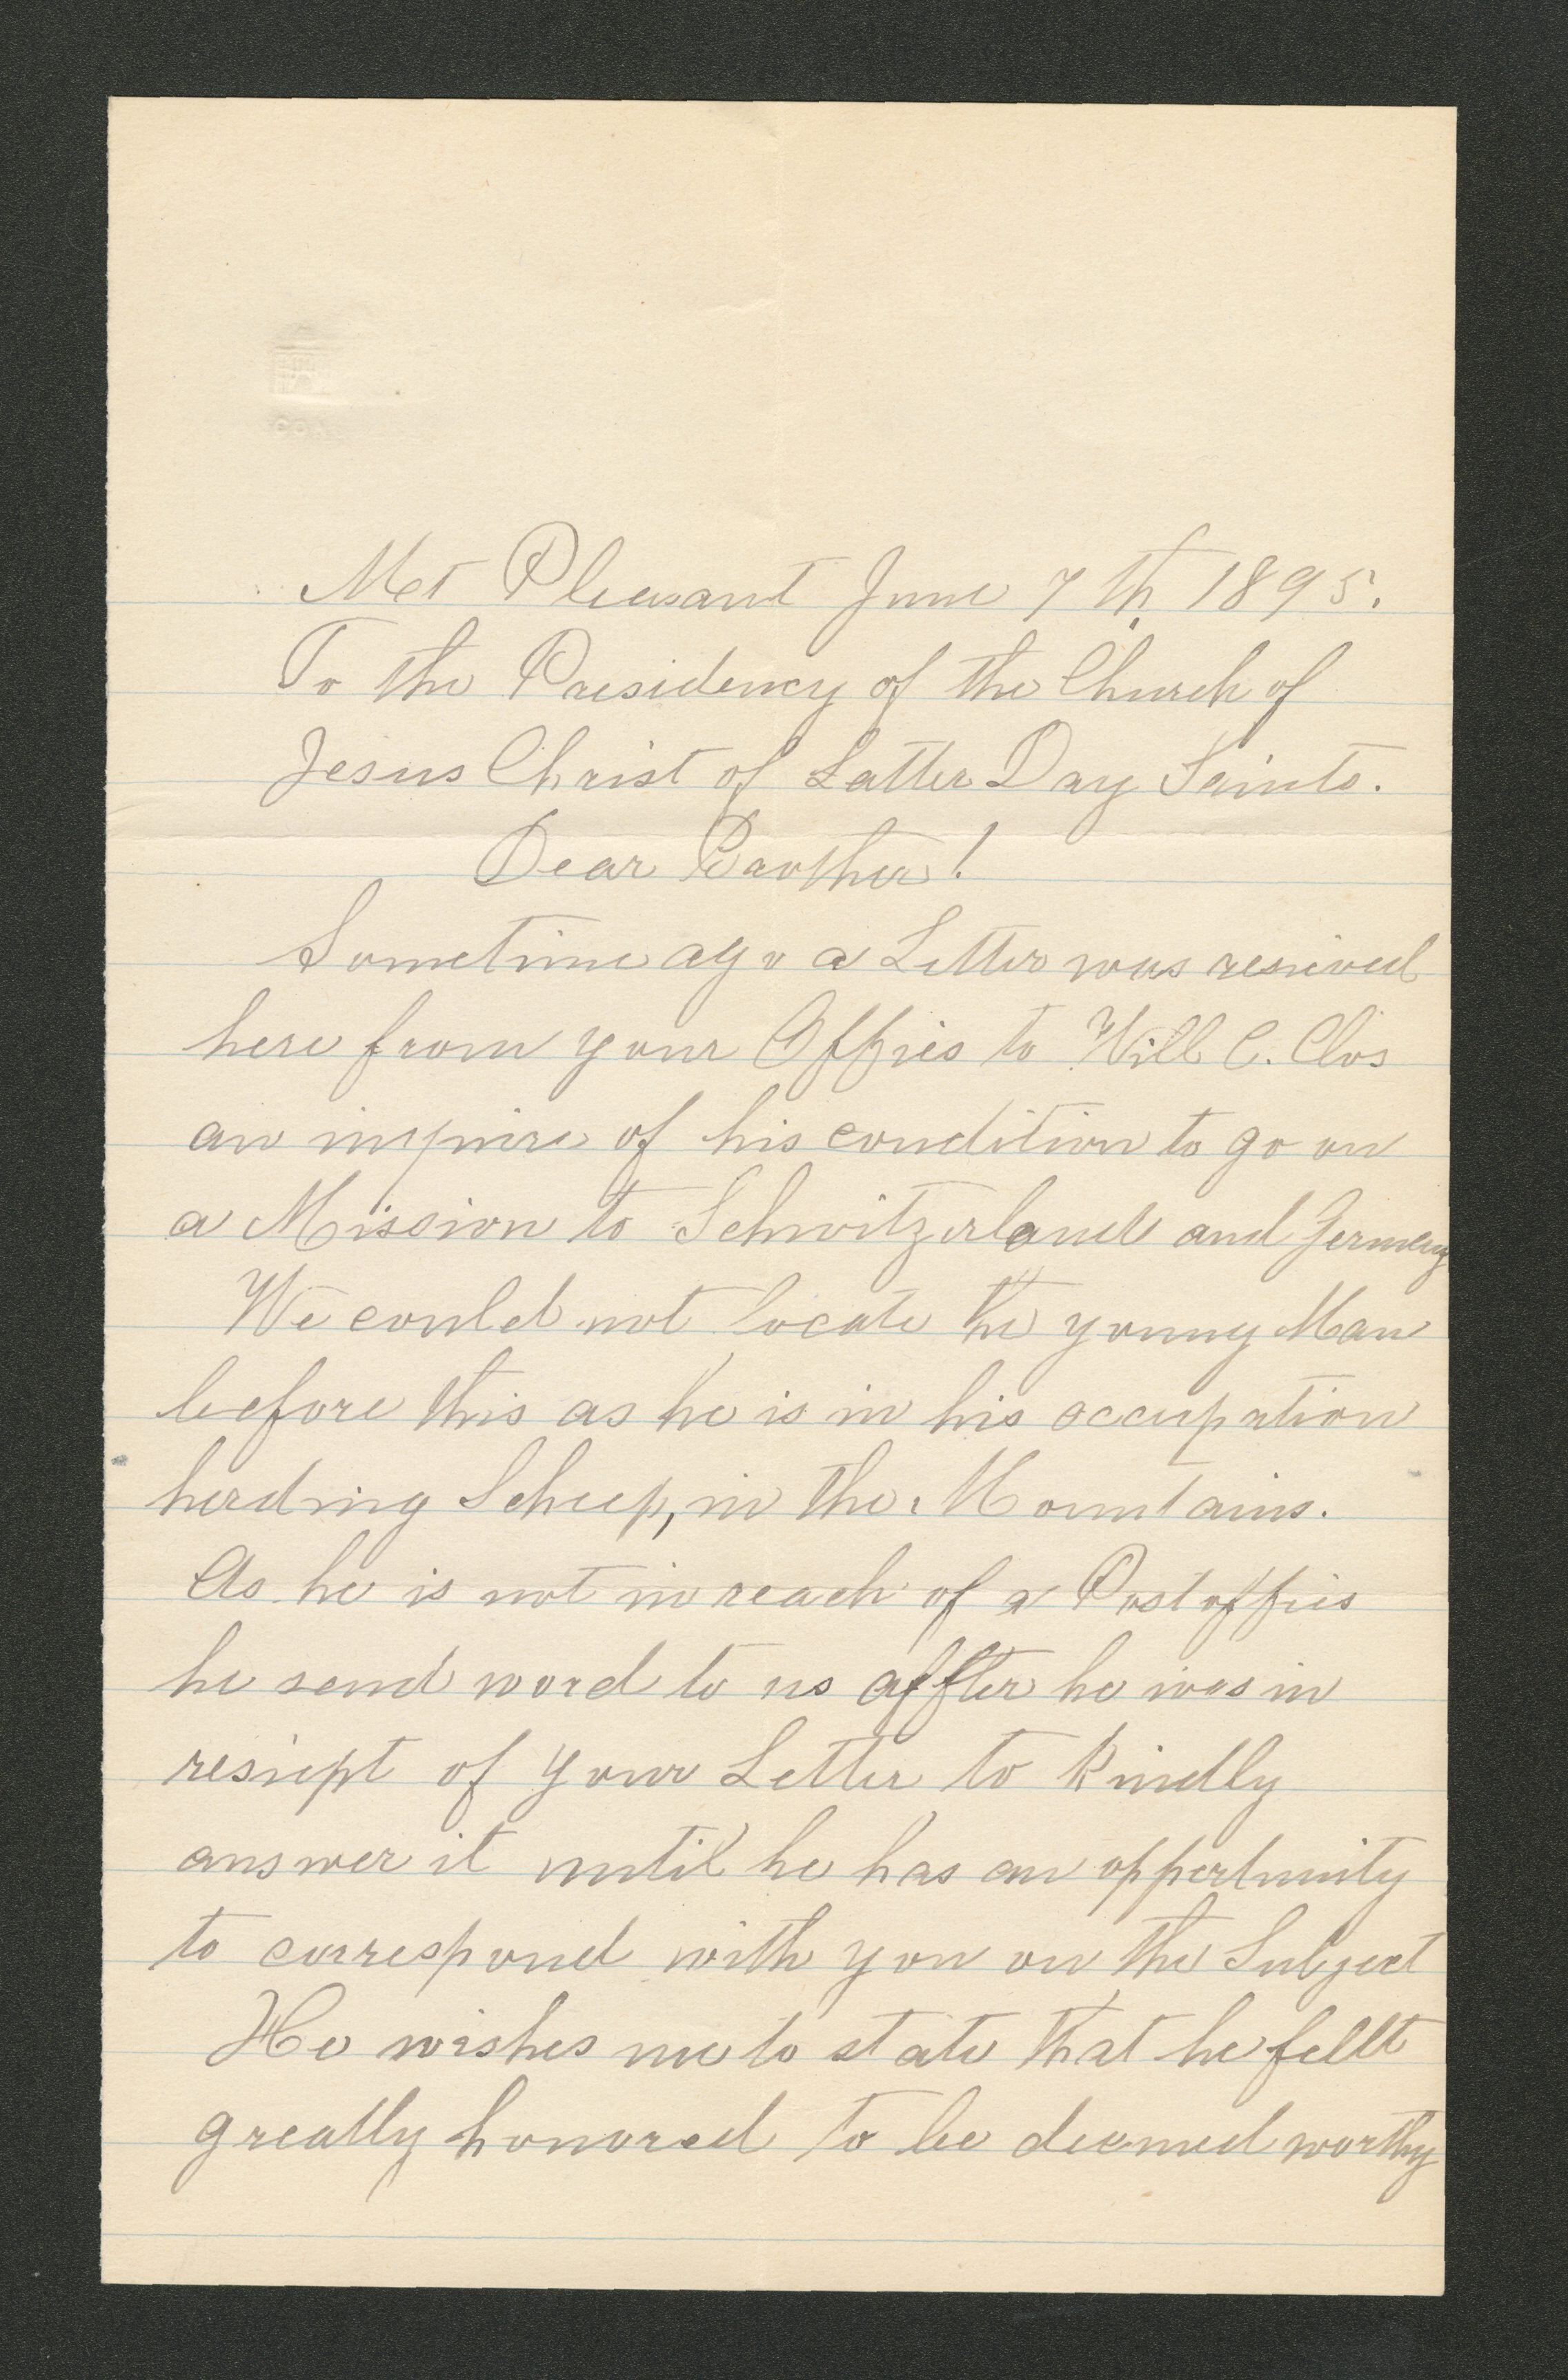 Mt Pleasant June 7th 1895.
To the Presidency of the Church of
Jesus Christ of Latter Day Saints.
Dear Brother!
Sometime ago a Letter was resieved
here from your Offies to Will C. Clos
an inquire of his condition to go on
a Mission to Schwitzerland and Germany
We could not locate the young Man
before this as he is in his occupation
herding Scheep, in the Mountains.
As he is not in reach of a Postoffies
he send word to us affter he was in
resiept of your Letter to kindly
answer it until he has an oppertunity
to correspond with you on the Subject
He wishes me to state that he fellt
greatly honored to be deemed worthy